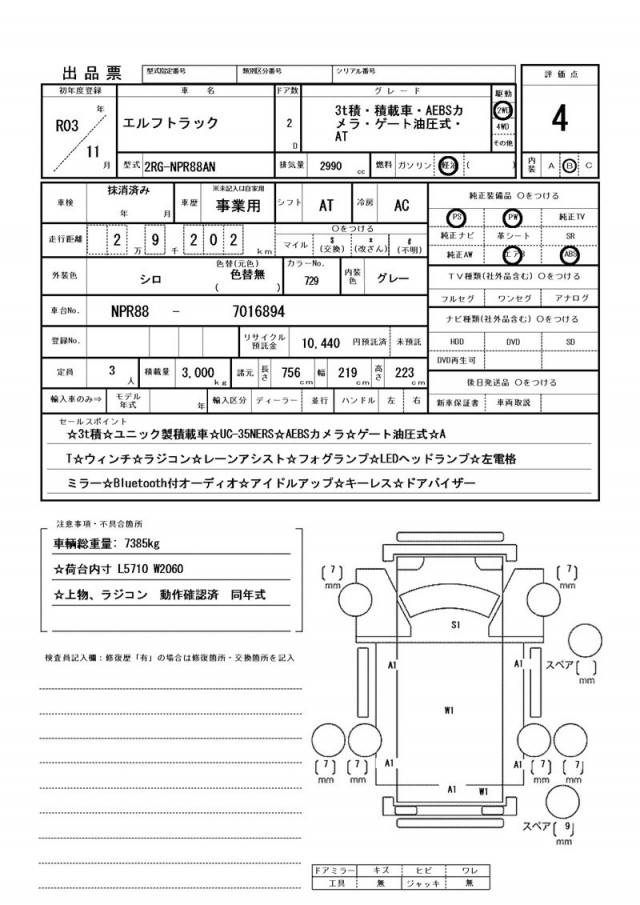 出品票 型式指定番号 類別区分番号 シリアル番号
評価点
4
内装 A B C
初年度登録 車名 ドア数 グレード 駆動
R03 年 11 月
エルフトラック
2 D
3t積・積載車・AEBSカ
メラ・ゲート油圧式・
AT
2WD
4WD
その他
型式 2RG-NPR88AN 排気量 2990 cc 燃料 ガソリン 軽油 ( )
車検 抹消済み 年 月 車歴 ※未記入は自家用 事業用 シフト AT 冷房 AC
走行距離 2 万 9 千 2 0 2 km
〇をつける
マイル $ (交換) * (改ざん) # (不明)
外装色 シロ 色替(元色) 色替無 ( ) カラーNo. 729 内装色 グレー
車台No. NPR88 - 7016894
登録No. リサイクル預託金 10,440 円預託済 未預託
定員 3 人 積載量 3,000 kg 諸元 長さ 756 cm 幅 219 cm 高さ 223 cm
輸入車のみ⇒ モデル年式 年 輸入区分 ディーラー 並行 ハンドル 左 右
純正装備品 〇をつける
PS PW 純正TV
純正ナビ 革シート SR
純正AW エアB ABS
TV種類(社外品含む) 〇をつける
フルセグ ワンセグ アナログ
ナビ種類(社外品含む) 〇をつける
HDD DVD SD
DVD再生可
後日発送品 〇をつける
新車保証書 車両取説
セールスポイント
☆3t積☆ユニック製積載車☆UC-35NERS☆AEBSカメラ☆ゲート油圧式☆A
T☆ウィンチ☆ラジコン☆レーンアシスト☆フォグランプ☆LEDヘッドランプ☆左電格
ミラー☆Bluetooth付オーディオ☆アイドルアップ☆キーレス☆ドアバイザー
注意事項・不具合箇所
車輌総重量: 7385kg
☆荷台内寸 L5710 W2060
☆上物、ラジコン 動作確認済 同年式
検査員記入欄：修復歴「有」の場合は修復箇所・交換箇所を記入
(7) mm (7) mm
S1
A1 A1
スペア( ) mm
W1
A1 A1
(7) mm (7) mm (7) mm (7) mm
A1 W1
スペア(9) mm
ドアミラー キズ ヒビ ワレ
工具 無 ジャッキ 無